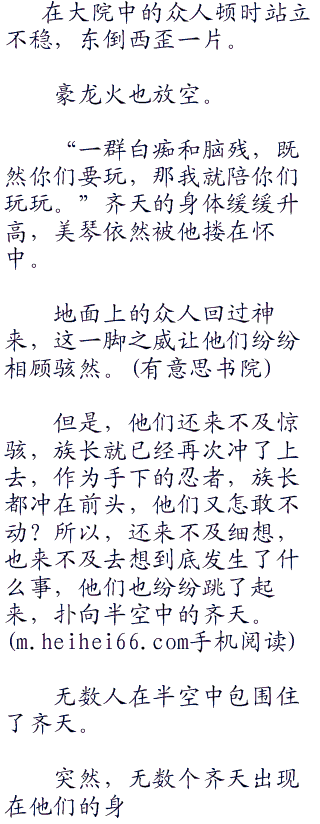 在大院中的众人顿时站立
不稳，东倒西歪一片。
豪龙火也放空。
“一群白痴和脑残，既
然你们要玩，那我就陪你们
玩玩。”齐天的身体缓缓升
高，美琴依然被他搂在怀
中。
地面上的众人回过神
来，这一脚之威让他们纷纷
相顾骇然。(有意思书院)
但是，他们还来不及惊
骇，族长就已经再次冲了上
去，作为手下的忍者，族长
都冲在前头，他们又怎敢不
动？所以，还来不及细想，
也来不及去想到底发生了什
么事，他们也纷纷跳了起
来，扑向半空中的齐天。
(m.heihei66.com手机阅读)
无数人在半空中包围住
了齐天。
突然，无数个齐天出现
在他们的身